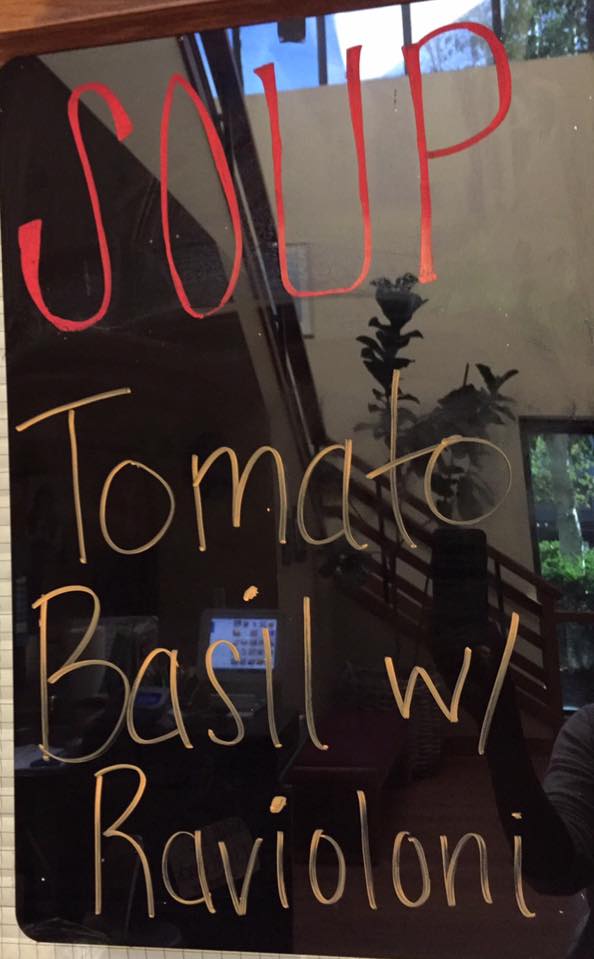 SOUP
Tomato
Basil w/
Ravioloni